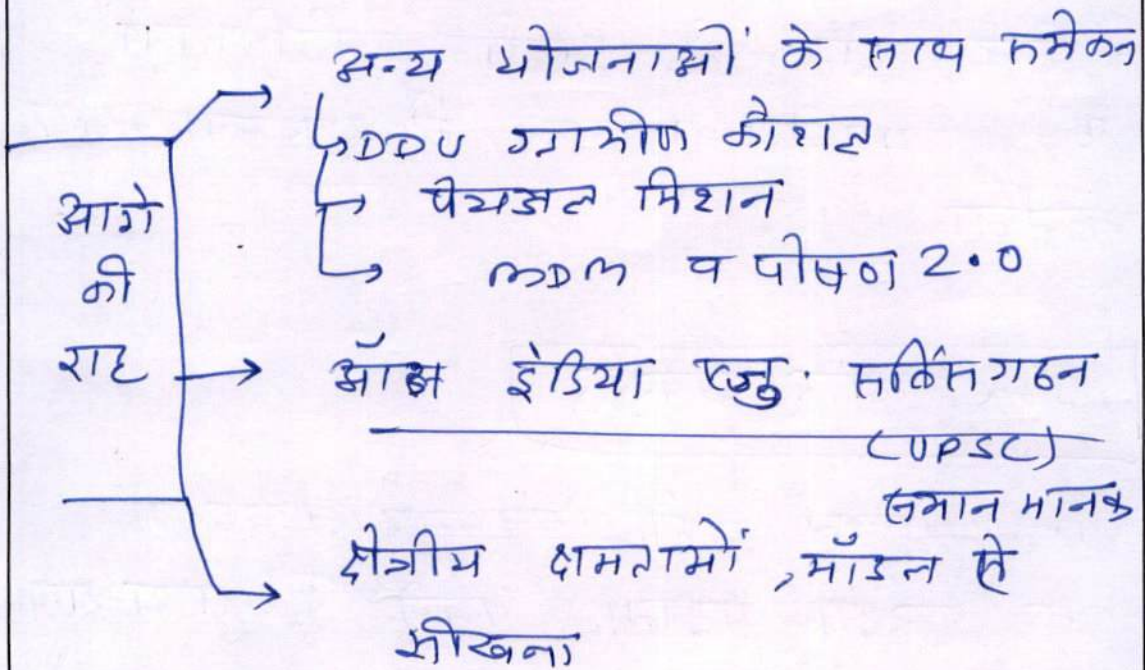 अन्य योजनाओं के साथ समेकन
DDU ग्रामीण कौशल
पेयजल मिशन
MDM व पोषण 2.0
आगे
की
राह
ऑल इंडिया एजु. सर्विस गठन
(UPSC)
समान मानक
क्षेत्रीय क्षमताओं, मॉडल से
सीखना